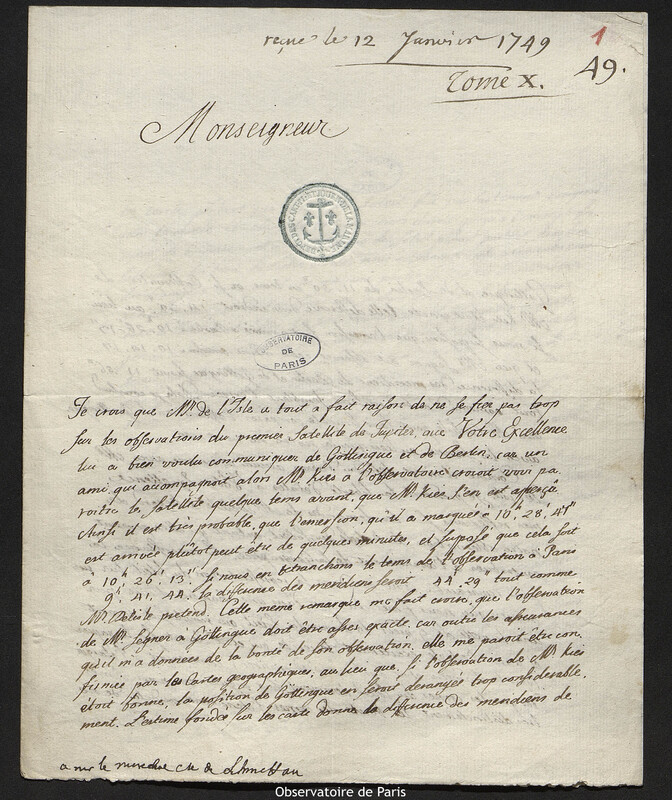 reçue le 12 Janvier 1749
1
49.
Tome X.
Monseigneur
OBSERVATOIRE
DE
PARIS
Je crois que Mr. de l'Isle a tout a fait raison de ne se fier pas trop
sur les observations du premier Satellite de Jupiter, que Votre Excellence
lui a bien voulu communiquer de Göttingue et de Berlin, car un
ami, qui accompagnoit alors Mr. Kies à l'observatoire croioit voir pa
roitre le Satellite quelque tems avant, que Mr. Kies s'en est apperçû
Ainsi il est tres probable, que l'emersion, qu'il a marquée à 10h. 28'. 41"
est arrivée plûtôt peut être de quelques minutes, et supposé que cela soit
à 10h. 26'. 13". si nous en retranchons le tems de l'observation à Paris
9h. 41'. 44. la difference des meridiens seroit 44'. 29 tout comme
Mr. Delisle pretend. Cette meme remarque me fait croire, que l'observation
de Mr. Segner a Göttingue doit être asses exacte, car outre les assurances
qu'il m'a données de la bonté de son observation, elle me paroit être con
firmée par les Cartes geographiques, au lieu que, si l'observation de Mr. Kies
étoit bonne, la position de Göttingue en seroit derangée trop considerable
ment. L'estime fondée sur les carte donne la difference des meridiens de
a mr le marechal Cte de Schmettau
Observatoire de Paris